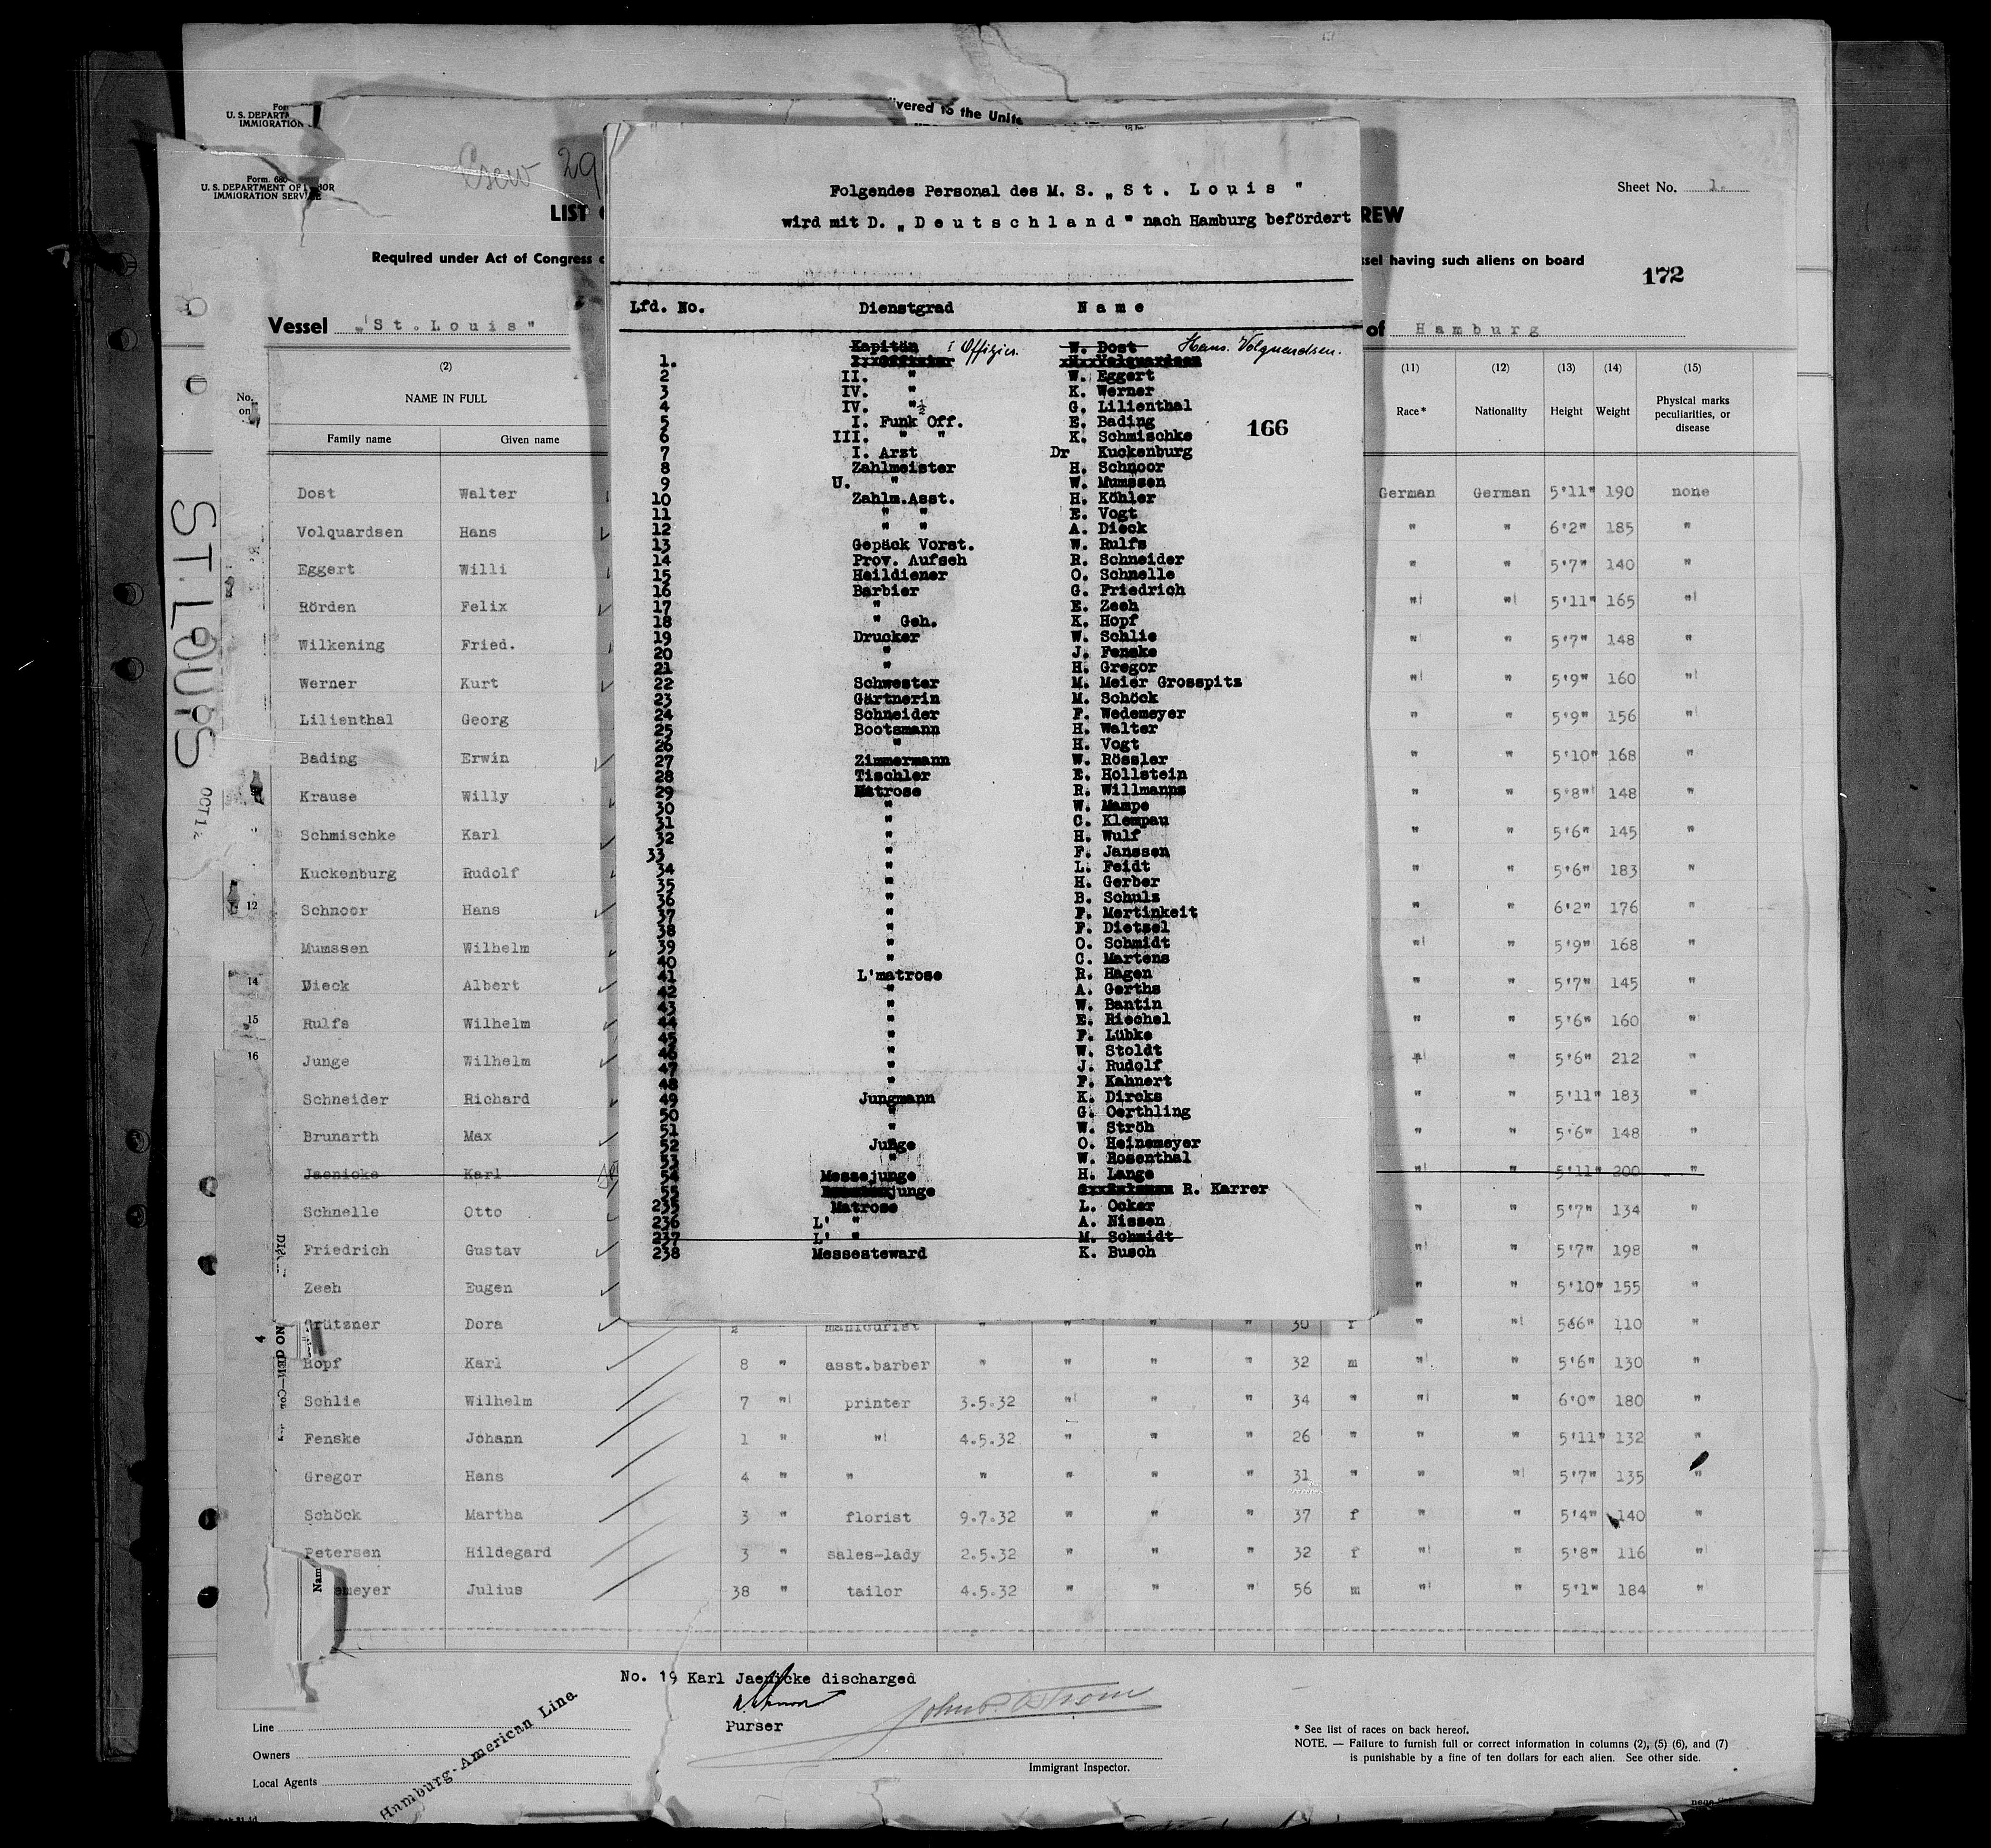 For
U. S. DEPART
IMMIGRATION
vered to the Unite
Crew 29
Form. 680
U. S. DEPARTMENT OF LABOR
IMMIGRATION SERVICE
Sheet No. 1.
LIST
REW
Required under Act of Congress
ssel having such aliens on board
172
Vessel „St. Louis"
of Hamburg
ST. LOUIS
OCT 1
Folgendes Personal des M. S. „St. Louis "
wird mit D. „Deutschland" nach Hamburg befördert
Lfd. No. Dienstgrad Name
Kapitän W. Dost
1. I Offizier. Hans. Volquardsen.
2 II. " W. Eggert
3 IV. " K. Werner
4 IV. " G. Lilienthal
5 I. Funk Off. E. Bading
166
6 III. " " K. Schmischke
7 I. Arzt Dr Kuckenburg
8 Zahlmeister H. Schnoor
9 U. " W. Mumssen
10 Zahlm.Asst. H. Köhler
11 " " E. Vogt
12 " " A. Dieck
13 Gepäck Vorst. W. Rulfs
14 Prov. Aufseh R. Schneider
15 Heildiener O. Schnelle
16 Barbier G. Friedrich
17 " E. Zeeh
18 " Geh. K. Hopf
19 Drucker W. Schlie
20 " J. Fenske
21 " H. Gregor
22 Schwester M. Meier Grosspitz
23 Gärtnerin M. Schöck
24 Schneider F. Wedemeyer
25 Bootsmann H. Walter
26 " H. Vogt
27 Zimmermann W. Rössler
28 Tischler E. Hollstein
29 Matrose R. Willmanns
30 " W. Mampe
31 " C. Klempau
32 " H. Wulf
33 " F. Janssen
34 " L. Feidt
35 " H. Gerber
36 " B. Schulz
37 " F. Mertinkeit
38 " F. Dietzel
39 " O. Schmidt
40 " C. Martens
41 L'matrose R. Hagen
42 " A. Gerths
43 " W. Bantin
44 " E. Riechel
45 " F. Lübke
46 " W. Stoldt
47 " J. Rudolf
48 " F. Kahnert
49 Jungmann K. Dircks
50 " G. Oerthling
51 " W. Ströh
52 Junge O. Heinemeyer
53 " W. Rosenthal
54 Messejunge H. Lange
55 junge R. Karrer
235 Matrose L. Ocker
236 L' " A. Nissen
237 L' " M. Schmidt
238 Messesteward K. Busch
No. on
(2) (11) (12) (13) (14) (15)
NAME IN FULL Race* Nationality Height Weight Physical marks peculiarities, or disease
Family name Given name
Dost Walter German German 5'11" 190 none
Volquardsen Hans " " 6'2" 185 "
Eggert Willi " " 5'7" 140 "
Rörden Felix " " 5'11" 165 "
Wilkening Fried. " " 5'7" 148 "
Werner Kurt " " 5'9" 160 "
Lilienthal Georg " " 5'9" 156 "
Bading Erwin " " 5'10" 168 "
Krause Willy " " 5'8" 148 "
Schmischke Karl " " 5'6" 145 "
Kuckenburg Rudolf " " 5'6" 183 "
12 Schnoor Hans " " 6'2" 176 "
Mumssen Wilhelm " " 5'9" 168 "
14 Dieck Albert " " 5'7" 145 "
15 Rulfs Wilhelm " " 5'6" 160 "
16 Junge Wilhelm " " 5'6" 212 "
Schneider Richard " " 5'11" 183 "
Brunarth Max " " 5'6" 148 "
Jaenicke Karl " " 5'11" 200 "
Schnelle Otto " " 5'7" 134 "
Friedrich Gustav " " 5'7" 198 "
Zeeh Eugen " " 5'10" 155 "
Grützner Dora 2 manicurist " " " " 30 f " " 5'6" 110 "
Hopf Karl 8 " asst.barber " " " " 32 m " " 5'6" 130 "
Schlie Wilhelm 7 " printer 3.5.32 " " " 34 " " " 6'0" 180 "
Fenske Johann 1 " " 4.5.32 " " " 26 " " " 5'11" 132 "
Gregor Hans 4 " " " " " " 31 " " " 5'7" 135 "
Schöck Martha 3 " florist 9.7.32 " " " 37 f " " 5'4" 140 "
Petersen Hildegard 3 " sales-lady 2.5.32 " " " 32 f " " 5'8" 116 "
emeyer Julius 38 " tailor 4.5.32 " " " 56 m " " 5'1" 184 "
No. 19 Karl Jaenicke discharged
Purser
Line
Owners
Local Agents
Hamburg-American Line.
Immigrant Inspector.
* See list of races on back hereof.
NOTE. — Failure to furnish full or correct information in columns (2), (5) (6), and (7)
is punishable by a fine of ten dollars for each alien. See other side.